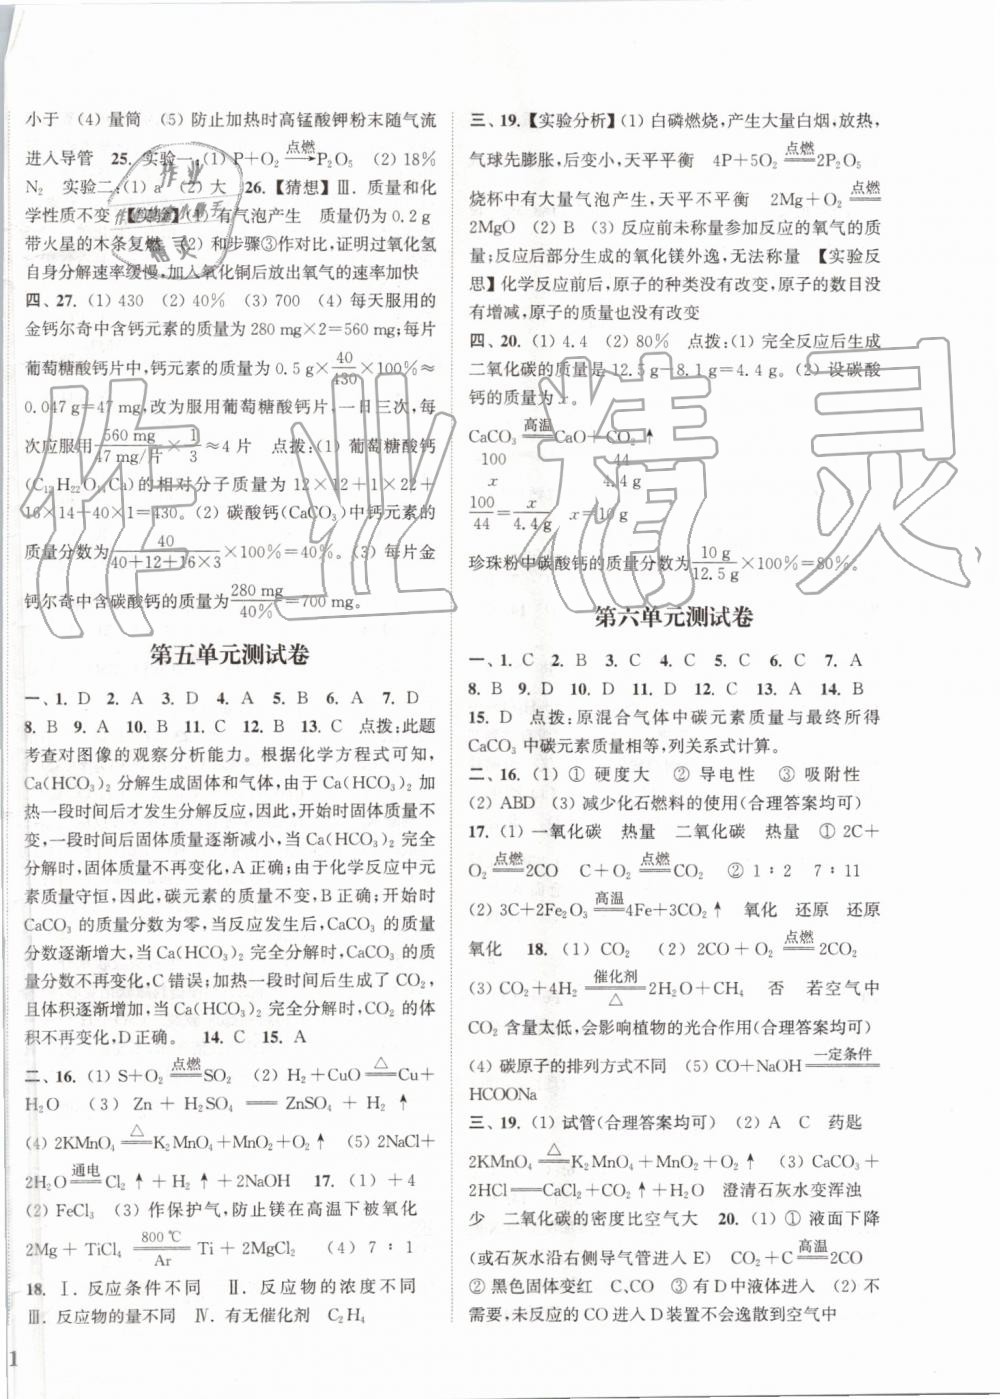 小于 (4) 量筒 (5) 防止加热时高锰酸钾粉末随气流
进入导管 25. 实验一:(1) P+O₂ 点燃→ P₂O₅ (2) 18%
N₂ 实验二:(1) a (2) 大 26.【猜想】Ⅲ. 质量和化
学性质不变 【实验】(1) 有气泡产生 质量仍为 0.2 g
带火星的木条复燃 (2) 和步骤③作对比,证明过氧化氢
自身分解速率缓慢,加入氧化铜后放出氧气的速率加快
四、27. (1) 430 (2) 40% (3) 700 (4) 每天服用的
金钙尔奇中含钙元素的质量为 280 mg×2=560 mg;每片
葡萄糖酸钙片中,钙元素的质量为 0.5 g×40/430×100%≈
0.047 g=47 mg,改为服用葡萄糖酸钙片,一日三次,每
次应服用 560 mg/47 mg/片 × 1/3 ≈4 片 点拨:(1) 葡萄糖酸钙
(C₁₂H₂₂O₁₄Ca)的相对分子质量为 12×12+1×22+
16×14+40×1=430。(2) 碳酸钙(CaCO₃)中钙元素的
质量分数为 40/40+12+16×3 ×100%=40%。(3) 每片金
钙尔奇中含碳酸钙的质量为 280 mg/40% =700 mg。
第五单元测试卷
一、1. D 2. A 3. D 4. A 5. B 6. A 7. D
8. B 9. A 10. B 11. C 12. B 13. C 点拨:此题
考查对图像的观察分析能力。根据化学方程式可知,
Ca(HCO₃)₂ 分解生成固体和气体,由于 Ca(HCO₃)₂ 加
热一段时间后才发生分解反应,因此,开始时固体质量不
变,一段时间后固体质量逐渐减小,当 Ca(HCO₃)₂ 完全
分解时,固体质量不再变化,A 正确;由于化学反应中元
素质量守恒,因此,碳元素的质量不变,B 正确;开始时
CaCO₃ 的质量分数为零,当反应发生后,CaCO₃ 的质量
分数逐渐增大,当 Ca(HCO₃)₂ 完全分解时,CaCO₃ 的质
量分数不再变化,C 错误;加热一段时间后生成了 CO₂,
且体积逐渐增加,当 Ca(HCO₃)₂ 完全分解时,CO₂ 的体
积不再变化,D 正确。 14. C 15. A
二、16. (1) S+O₂ 点燃══ SO₂ (2) H₂+CuO △══ Cu+
H₂O (3) Zn + H₂SO₄ ══ ZnSO₄ + H₂ ↑
(4) 2KMnO₄ △══ K₂MnO₄+MnO₂+O₂ ↑ (5) 2NaCl+
2H₂O 通电══ Cl₂ ↑ + H₂ ↑ +2NaOH 17. (1) +4
(2) FeCl₃ (3) 作保护气,防止镁在高温下被氧化
2Mg + TiCl₄ 800 ℃══Ar Ti + 2MgCl₂ (4) 7 : 1
18. Ⅰ. 反应条件不同 Ⅱ. 反应物的浓度不同
Ⅲ. 反应物的量不同 Ⅳ. 有无催化剂 C₂H₄
1
三、19.【实验分析】(1) 白磷燃烧,产生大量白烟,放热,
气球先膨胀,后变小,天平平衡 4P+5O₂ 点燃══ 2P₂O₅
烧杯中有大量气泡产生,天平不平衡 2Mg+O₂ 点燃══
2MgO (2) B (3) 反应前未称量参加反应的氧气的质
量;反应后部分生成的氧化镁外逸,无法称量 【实验反
思】化学反应前后,原子的种类没有改变,原子的数目没
有增减,原子的质量也没有改变
四、20. (1) 4.4 (2) 80% 点拨:(1) 完全反应后生成
二氧化碳的质量是 12.5 g−8.1 g=4.4 g。(2) 设碳酸
钙的质量为 x。
CaCO₃ 高温══ CaO+CO₂ ↑
100 44
x 4.4 g
100/44 = x/4.4 g x=10 g
珍珠粉中碳酸钙的质量分数为 10 g/12.5 g ×100%=80%。
第六单元测试卷
一、1. C 2. B 3. C 4. C 5. C 6. C 7. A
8. B 9. D 10. D 11. D 12. C 13. A 14. B
15. D 点拨:原混合气体中碳元素质量与最终所得
CaCO₃ 中碳元素质量相等,列关系式计算。
二、16. (1) ① 硬度大 ② 导电性 ③ 吸附性
(2) ABD (3) 减少化石燃料的使用(合理答案均可)
17. (1) 一氧化碳 热量 二氧化碳 热量 ① 2C+
O₂ 点燃══ 2CO C+O₂ 点燃══ CO₂ ② 1∶2 7∶11
(2) 3C+2Fe₂O₃ 高温══ 4Fe+3CO₂ ↑ 氧化 还原 还原
氧化 18. (1) CO₂ (2) 2CO+O₂ 点燃══ 2CO₂
(3) CO₂+4H₂ 催化剂══△ 2H₂O+CH₄ 否 若空气中
CO₂ 含量太低,会影响植物的光合作用(合理答案均可)
(4) 碳原子的排列方式不同 (5) CO+NaOH 一定条件══
HCOONa
三、19. (1) 试管(合理答案均可) (2) A C 药匙
2KMnO₄ △══ K₂MnO₄+MnO₂+O₂ ↑ (3) CaCO₃+
2HCl══CaCl₂+CO₂ ↑+H₂O 澄清石灰水变浑浊
少 二氧化碳的密度比空气大 20. (1) ① 液面下降
(或石灰水沿右侧导气管进入 E) CO₂+C 高温══ 2CO
② 黑色固体变红 C、CO ③ 有 D 中液体进入 (2) 不
需要,未反应的 CO 进入 D 装置不会逸散到空气中
作业精灵